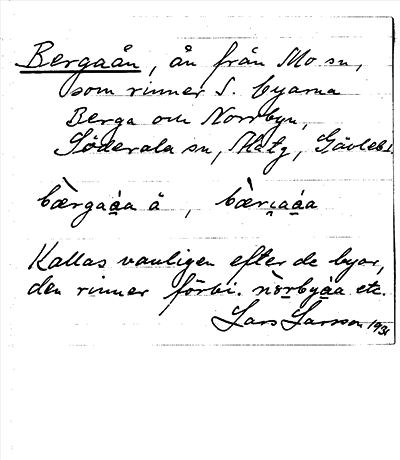 Bergaån, ån från Mo sn,
som rinner S. byarna
Berga och Norrbyn,
Söderala sn, Hälg, Gävleb.
bærgaá̱a å, bærɩaá̱a
Kallas vanligen efter de byar,
den rinner förbi. nòṟbyá̱a etc.
Lars Larsson 1931